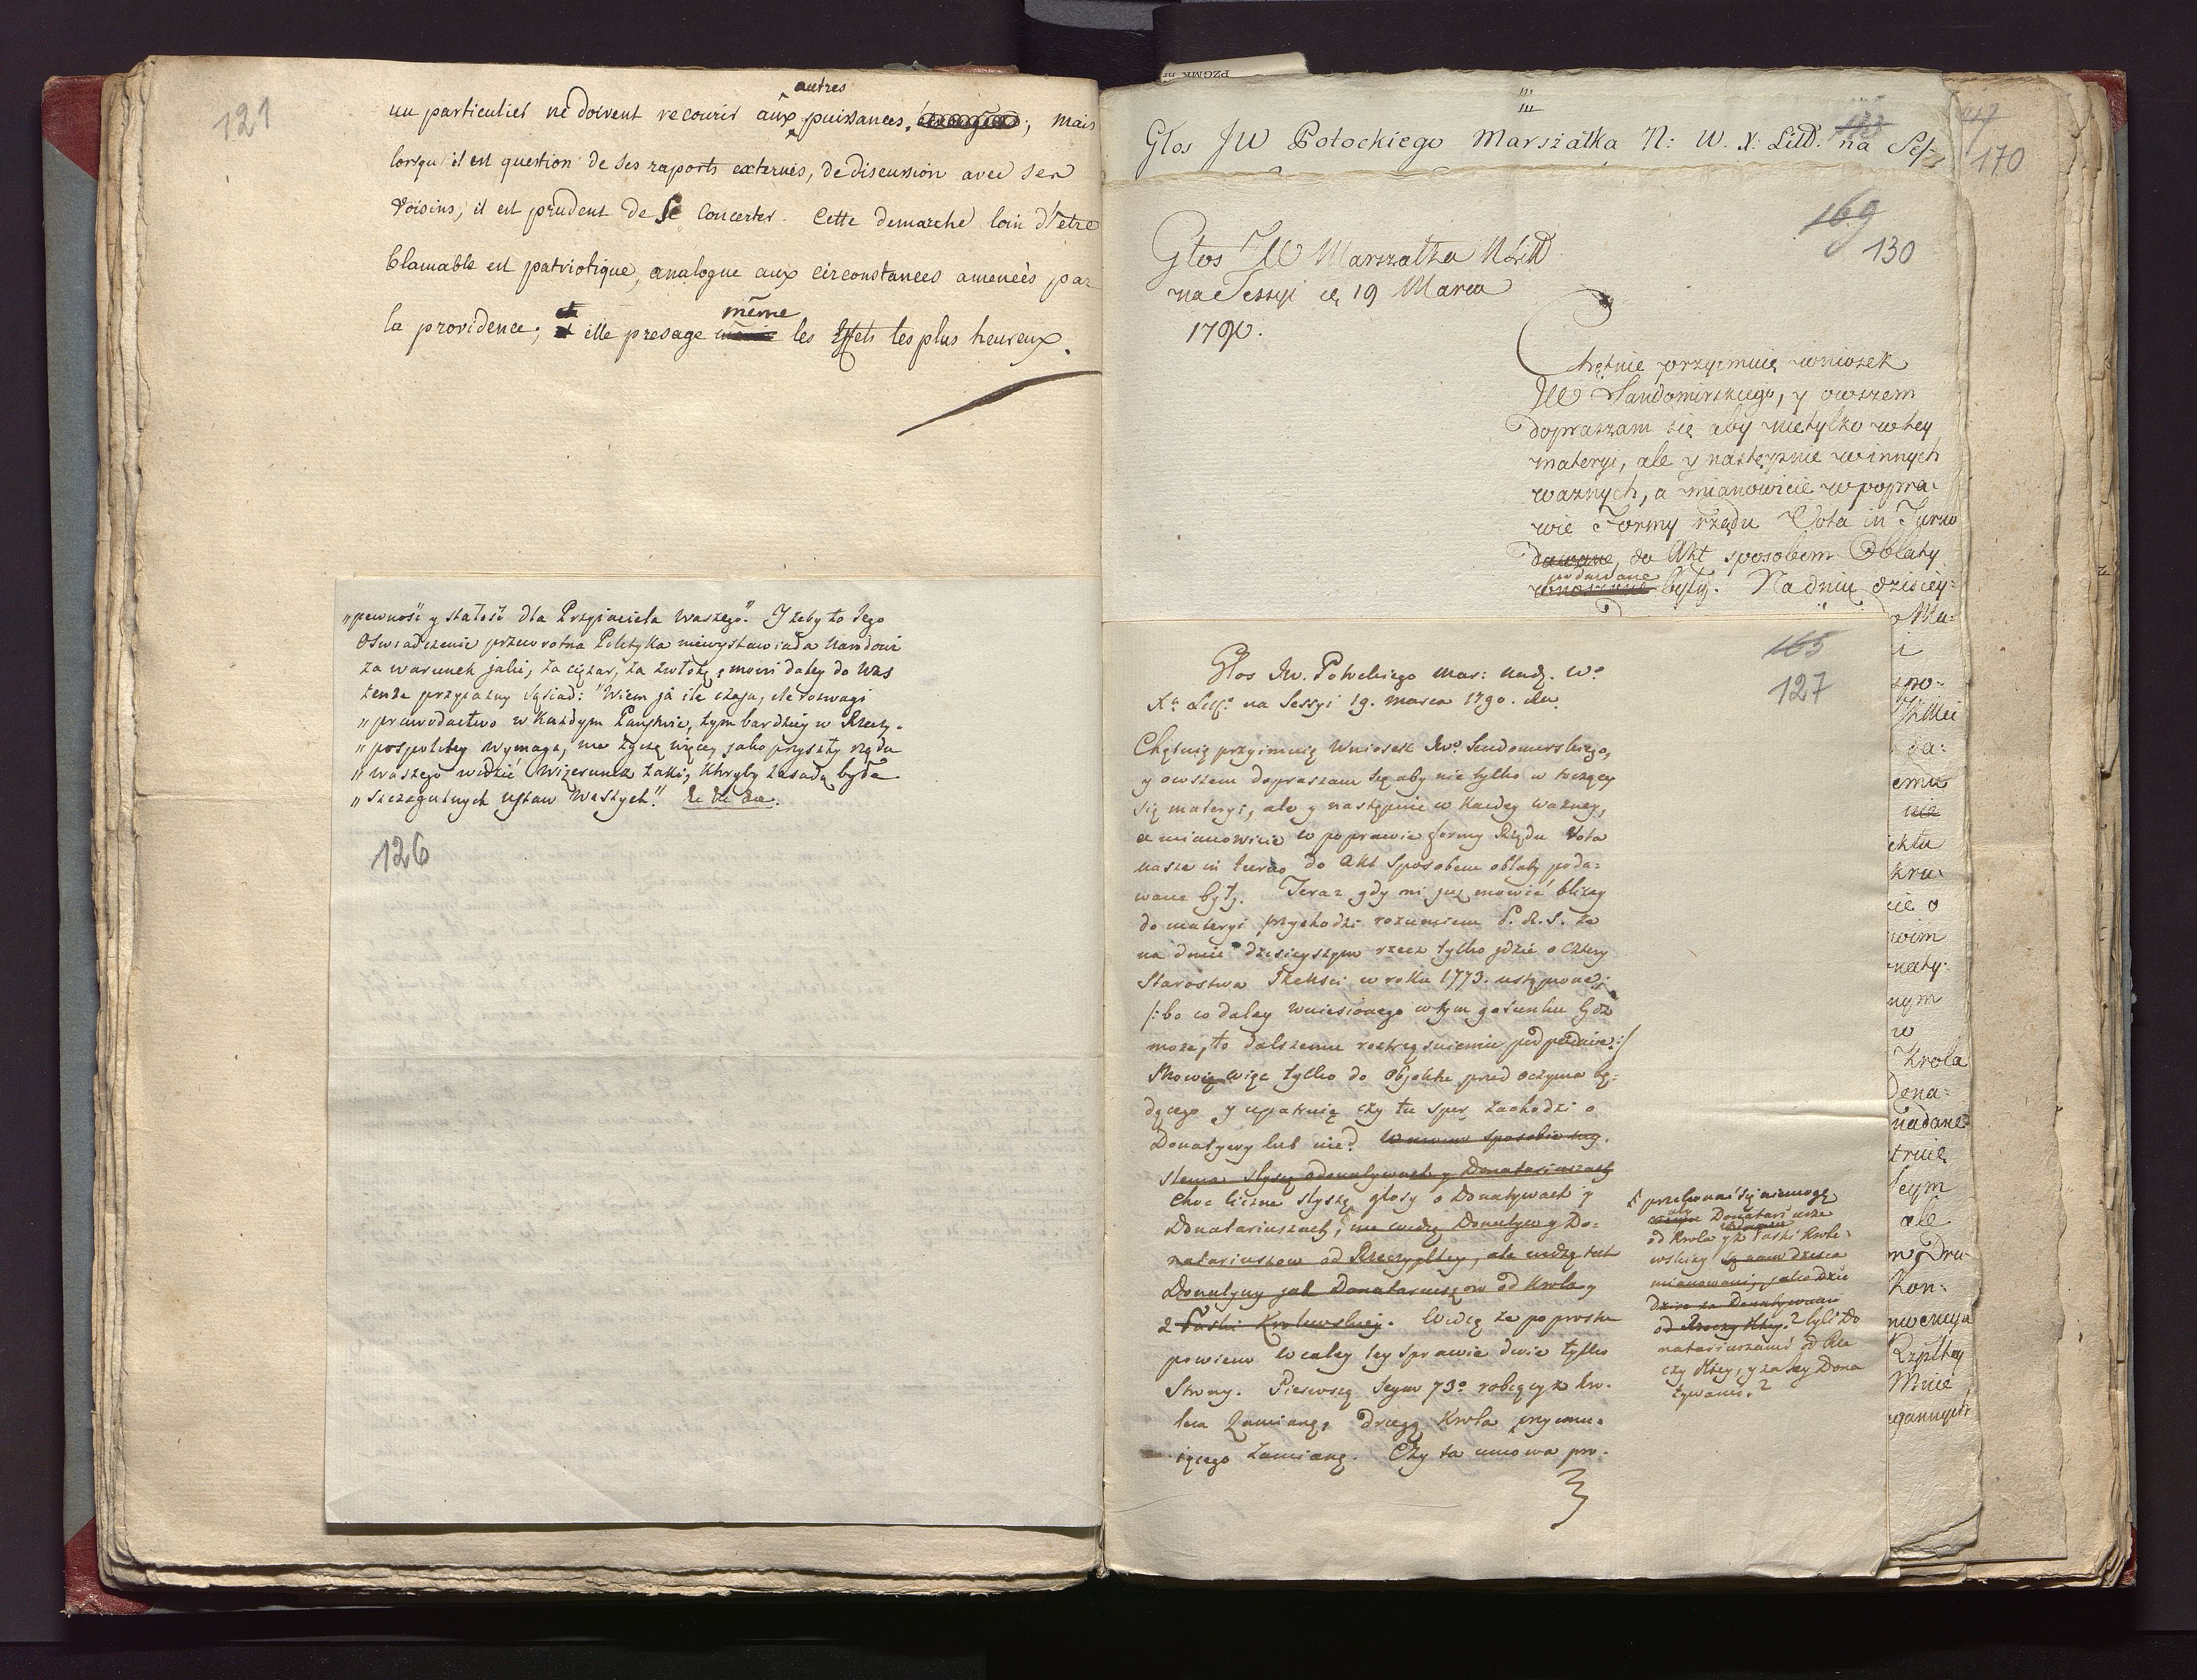 121
autres
un particulier ne doivent recourir aux puissances, ; mais
lorsqu'il est question de ses raports externes, de discussion avec ses
voisins, il est prudent de se concerter. Cette demarche loin d'être
blamable est patriotique, analogue aux circonstances amenées par
la providence; et elle presage même les effets les plus heureux.
„pewność y stałość dla Przyiaciela waszego." I żeby to Jego
Oswiadczenie przewrotna Polityka niewystawiała Narodowi
za warunek jaki, za ciężar, za zwłokę, mowi daley do Was
tenże przyiazny Sąsiad: "Wiem ja ile czasu, ile rozwagi
„prawodactwo w każdym Państwie, tym bardziey w Rzeczy-
„pospolitey wymaga, nie życzę więcey jako przyszły rządu
„waszego widzieć wizerunek taki, ktoryby zasadą była
„szczegulnych ustaw waszych".
126
Głos JW Potockiego Marszałka N: W. X: Litt: na Ses
170
169
130
Głos JW Marszałka N Litt
na Sessyi d. 19 Marca
1790.
Chętnie przyimuię wniosek
JW Sandomirskiego, y owszem
dopraszam się aby nietylko w tey
materyi, ale y następnie w innych
ważnych, a mianowicie w popra-
wie Formy rządu Vota in Turno
dawane, do Akt sposobem Oblaty
podawane
wnoszone były. Na dniu dzisiey-
165
127
Głos Jw. Potockiego Mar: Nadw. Wo
Xa Litto na Sessyi 19. Marca 1790. Ru
Chętnię przyimuię Wniosek Jwo Sendomirskiego,
y owszem dopraszam się aby nie tylko w toczącey
się materyi, ale y następnie w każdey ważney,
a mianowicie w poprawie formy Rządu Vota
nasze in turno do Akt sposobem oblaty poda-
wane były. Teraz gdy mi już mowić bliżey
do materyi przychodzi rozumiem P. R. S. że
na dniu dzisieyszym rzecz tylko idzie o cztery
Starostwa w roku 1773. ustąpione;
/:bo co daley wniesionego w tym gatunku być
może, to dalszemu roztrząśnieniu podpadnie:/
Mowię więc tylko do Objektu przed oczyma bę-
dącego y upatruię czy tu spor zachodzi o
Donatywy lub nie? W nowym sposobie
słyszę o donatywach y Donatariuszach
Choc liczne słyszę głosy o Donatywach y
Donatariuszach, nie widzę Donatyw y Do-
natariuszow od Rzeczyplltey, ale widzę tak
Donatywy jak Donatariuszow od Krola y
z Łaski Krolewskiey. Widzę że po prostu
powiem w całey tey sprawie dwie tylko
Strony. Pierwszą Seym 73o robiący z Kro-
lem Zamianę, drugą Krola przyimu-
iącego Zamianę. Czy ta umowa pro-
przekonać się niemogę
aby Donatariusze
od Krola y z Łaski Krole-
wskiey
mianowani, jako
Donatywami
od Rzeczyplltey? byli Do
natariuszami od Rze
czyplltey, y za iey Dona
tywami.?
Krola
Dona-
nadane
Seym
ale
Kon-
Rzpltey